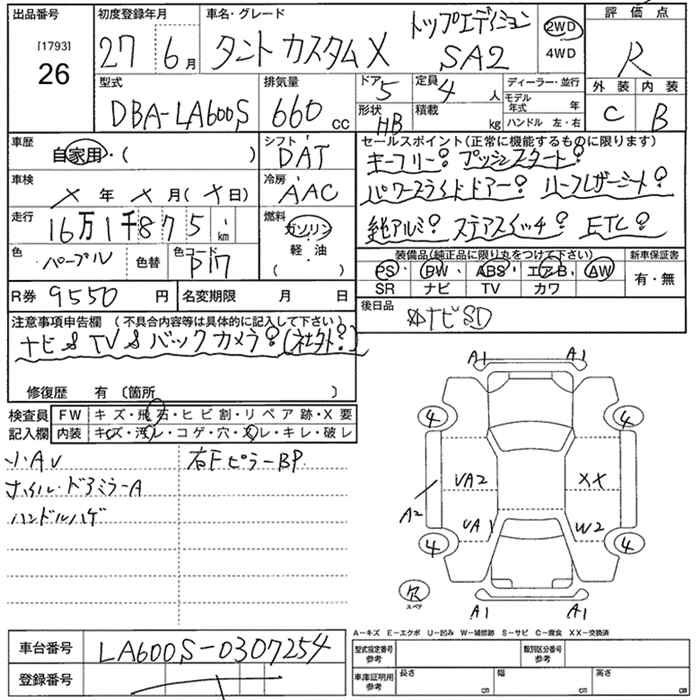 出品番号
[1793]
26
初度登録年月
27 6月
車名・グレード
タント カスタムX トップエディション SA2
2WD
4WD
評価点
R
型式
DBA-LA600S
排気量
660 cc
ドア
5
形状
HB
定員
4 人
積載
kg
ディーラー・並行
モデル年式 年
ハンドル 左・右
外装 内装
C B
車歴
自家用・( )
シフト
DAT
車検
X 年 X 月(X日)
冷房
AAC
走行
16万1千875 km
燃料
ガソリン
軽・油
( )
色
パープル 色替
色コード
P17
R券 9550 円
名変期限 月 日
セールスポイント(正常に機能するものに限ります)
キーフリー! プッシュスタート!
パワースライドドアー! ハーフレザーシート!
純アルミ! ステアスイッチ! ETC!
装備品(純正品に限り丸をつけて下さい)
PS・ PW・ ABS・ エアB・ AW
SR ナビ TV カワ
新車保証書
有・無
後日品
ナビSD
注意事項申告欄 (不具合内容等は具体的に記入して下さい)
ナビ&TV&バックカメラ!(社外!)
修復歴 有〔箇所 〕
検査員
記入欄
FW キズ・飛石・ヒビ割・リペア跡・X要
内装 キズ・汚レ・コゲ・穴・スレ・キレ・破レ
小AU
右FピラーBP
ドアミラーA
ハンドルハゲ
A1 A1
4 4
UA2 XX
A2
UA1 W2
4 4
欠
スペア
A1 A1
A－キズ E－エクボ U－凹み W－補修跡 S－サビ C－腐食 XX－交換済
車台番号 LA600S-0307254
登録番号
型式指定番号
参考
類別区分番号
参考
車庫証明用
参考
長さ 幅 高さ